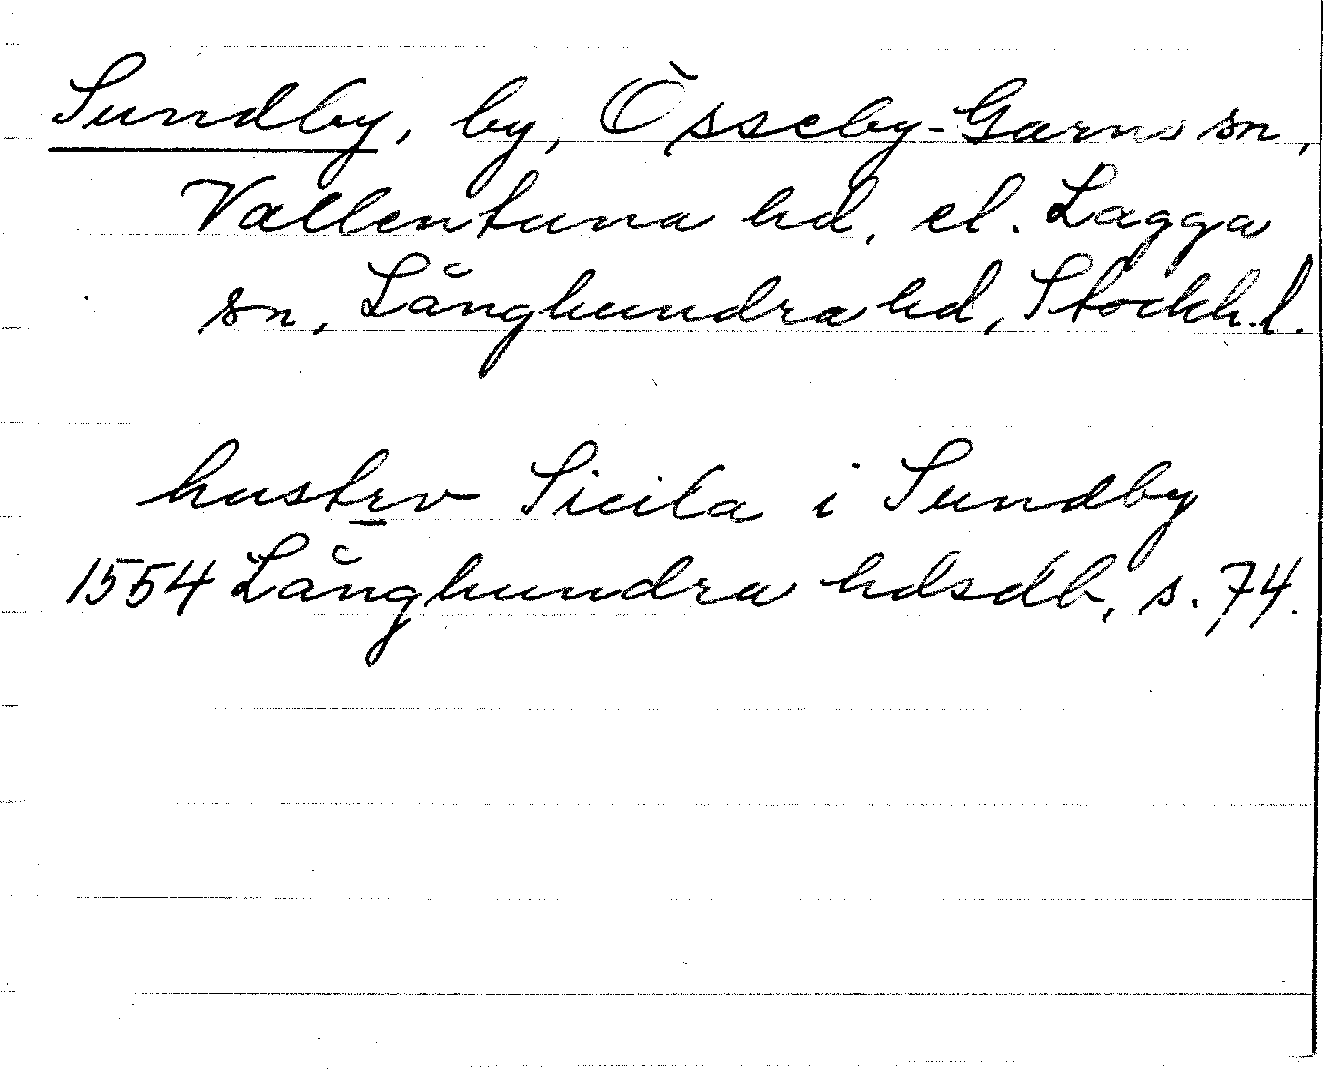 Sundby, by, Össeby-Garns sn,
Vallentuna hd, el. Lagga
sn, Långhundra hd, Stockh.l.
hustrv Sicila i Sundby
1554 Långhundra hdsdb, s. 74.